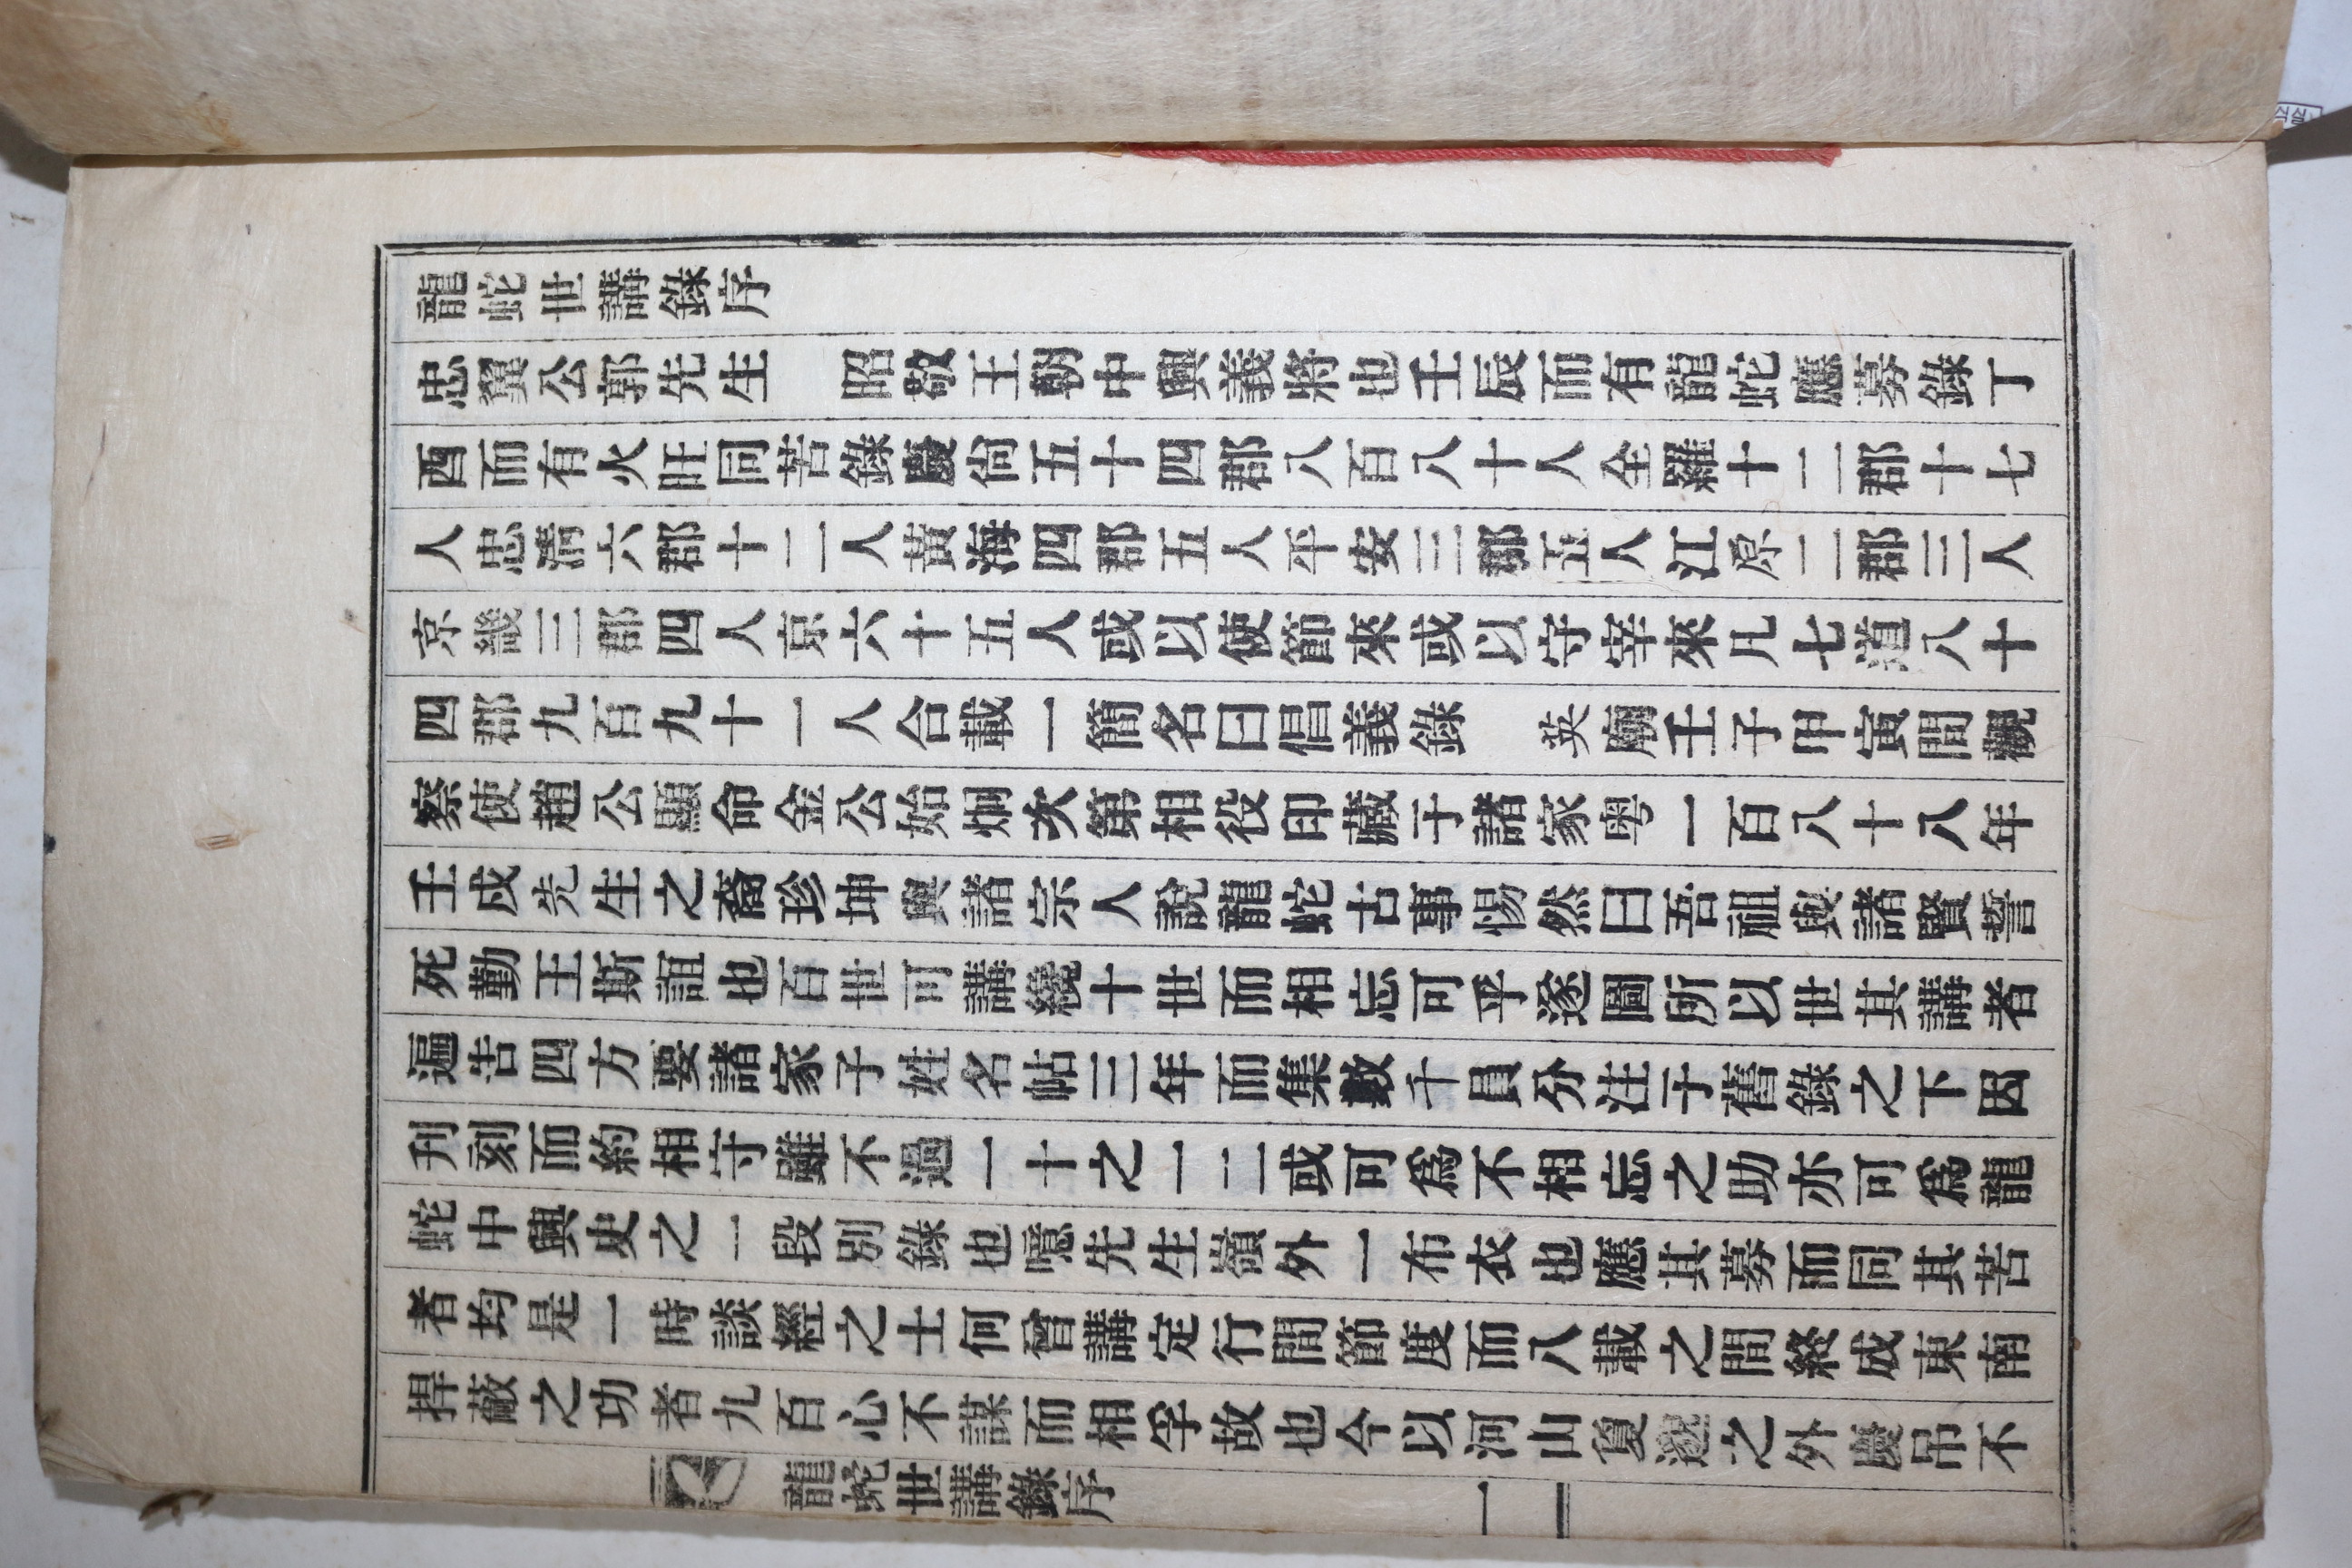 龍蛇世講錄序
忠翼公郭先生　昭敬王朝中興義將也壬辰而有龍蛇應募錄丁
酉而有火旺同苦錄慶尙五十四郡八百八十人全羅十二郡十七
人忠淸六郡十二人黃海四郡五人平安三郡五人江原二郡三人
京畿三郡四人京六十五人或以使節來或以守宰來凡七道八十
四郡九百九十一人合載一簡名曰倡義錄　英廟壬子甲寅間觀
察使趙公顯命金公始炯次第相役印藏于諸家粤一百八十八年
壬戍先生之裔珍坤與諸宗人說龍蛇古事惕然曰吾祖與諸賢誓
死勤王斯誼也百世可講纔十世而相忘可乎遂圖所以世其講者
遍告四方要諸家子姓名帖三年而集數千員分注于舊錄之下因
刋刻而約相守雖不過一十之一二或可爲不相忘之助亦可爲龍
蛇中興史之一段別錄也噫先生嶺外一布衣也應其募而同其苦
者均是一時談經之士何曾講定行間節度而八載之間終成東南
捍蔽之功者九百心不謀而相孚故也今以河山敻邈之外慶吊不
龍蛇世講錄序　一